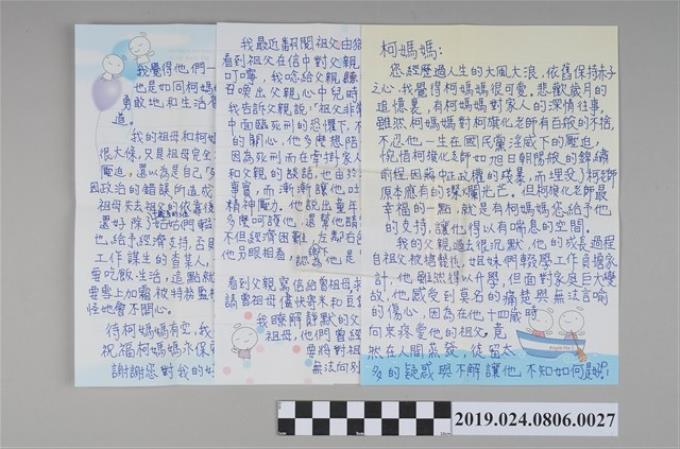 柯媽媽：
您經歷過人生的大風大浪，依舊保持赤子
之心，我覺得柯媽媽很可愛。悲歡歲月的
追憶裏，有柯媽媽對家人的深情往事。
雖然柯媽媽對柯旗化老師有百般的不捨，
不忍他一生在國民黨淫威下的壓迫，
惋惜柯旗化老師如旭日朝陽般的錦繡
前程，因蔣中正政權的殘暴，而埋没了柯老師
原本應有的璀燦光芒。但柯旗化老師最
幸福的一點，就是有柯媽媽您給予他
的支持，讓他得以有喘息的空間。
我的父親過去很沉默，他的成長過程
自祖父被槍斃後，姐妹們輟學工作負擔家
計，他雖然得以升學，但面對家庭巨大變
故，他感受到莫名的痛楚與無法言喻
的傷心，因為在他十四歲時
向來疼愛他的祖父，竟
然在人間蒸發，徒留太
多的疑惑與不解讓他不知如何是
我最近翻閱祖父由
看到祖父在信中對父親
叮嚀，我唸給父親聽
召喚出父親心中兒時
我告訴父親說，「祖父非常
中面臨死刑的恐懼下，不
的關心，他多麼想陪
因為死刑而在牽掛家人
和父親的談話，也由於
事實，而漸漸讓他吐
精神壓力。他說出童年
多麼呵護他，還幫他請
不但經濟困難，左鄰右舍
他另眼相看，認為他是
看到父親寫信給曾祖母求
請曾祖母儘快寄米和豆
我瞭解靜默的父
祖母，他們曾經
要將對祖
無法向別
我覺得他們一
也是如同柯媽媽
勇敢地和生活奮
道。
我的祖母和柯媽
很大條，只是祖母完全
壓迫，還以為是自己
因政治的錯誤所造成
祖母失去祖父的依靠後
還好除了姑姑們輟
也給予經濟支持，否則
工作謀生的查某人，
要吃飯、生活，這點就
要雪上加霜，被特務監
怪她會不開心。
待柯媽媽有空，我
祝福柯媽媽亦保
謝謝您對我的好
2019.024.0806.0027